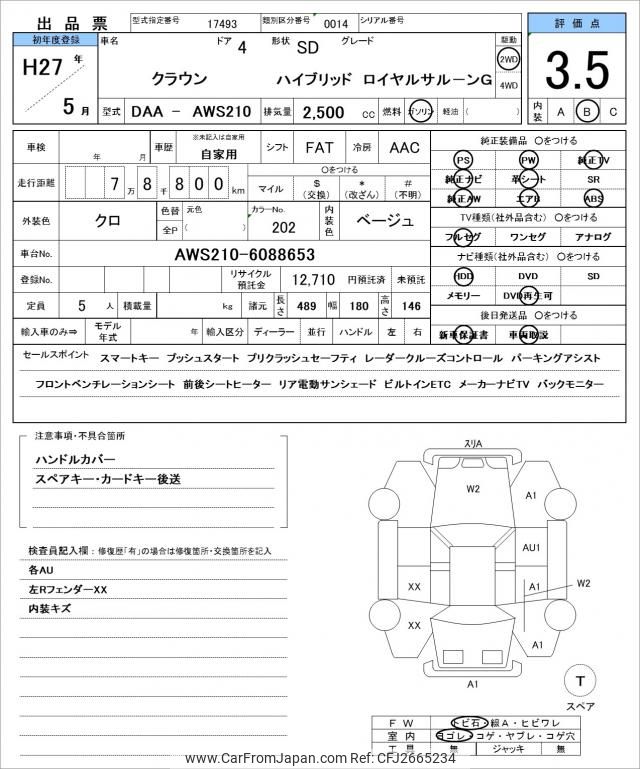 出品票 型式指定番号 17493 類別区分番号 0014 シリアル番号 評価点
初年度登録 車名 ドア 4 形状 SD グレード 駆動
H27 年 クラウン ハイブリッド ロイヤルサルーンG 2WD 3.5
4WD
5 月 型式 DAA - AWS210 排気量 2,500 cc 燃料 ガソリン 軽油 ( ) 内装 A B C
車検 年 月 車歴 ※未記入は自家用 自家用 シフト FAT 冷房 AAC 純正装備品 〇をつける
PS PW 純正TV
走行距離 7 万 8 千 8 0 0 km 〇をつける
マイル $ (交換) * (改ざん) # (不明)
純正ナビ 革シート SR
純正AW エアB ABS
外装色 クロ 色替 元色 全P ( ) カラーNo. 202 内装色 ベージュ TV種類(社外品含む) 〇をつける
フルセグ ワンセグ アナログ
車台No. AWS210-6088653 ナビ種類(社外品含む) 〇をつける
登録No. リサイクル預託金 12,710 円預託済 未預託 HDD DVD SD
定員 5 人 積載量 kg 諸元 長さ 489 幅 180 高さ 146 メモリー DVD再生可
後日発送品 〇をつける
輸入車のみ⇒ モデル年式 年 輸入区分 ディーラー 並行 ハンドル 左 右 新車保証書 車両取説
セールスポイント スマートキー プッシュスタート プリクラッシュセーフティ レーダークルーズコントロール パーキングアシスト
フロントベンチレーションシート 前後シートヒーター リア電動サンシェード ビルトインETC メーカーナビTV バックモニター
注意事項・不具合箇所
ハンドルカバー
スペアキー・カードキー後送
検査員記入欄:修復歴「有」の場合は修復箇所・交換箇所を記入
各AU
左RフェンダーXX
内装キズ
スリA
W2
A1
AU1
XX
A1
W2
XX
A1
A1
T
スペア
FW トビ石・線A・ヒビワレ
室内 ヨゴレ・コゲ・ヤブレ・コゲ穴
工具 無 ジャッキ 無
www.CarFromJapan.com Ref: CFJ2665234